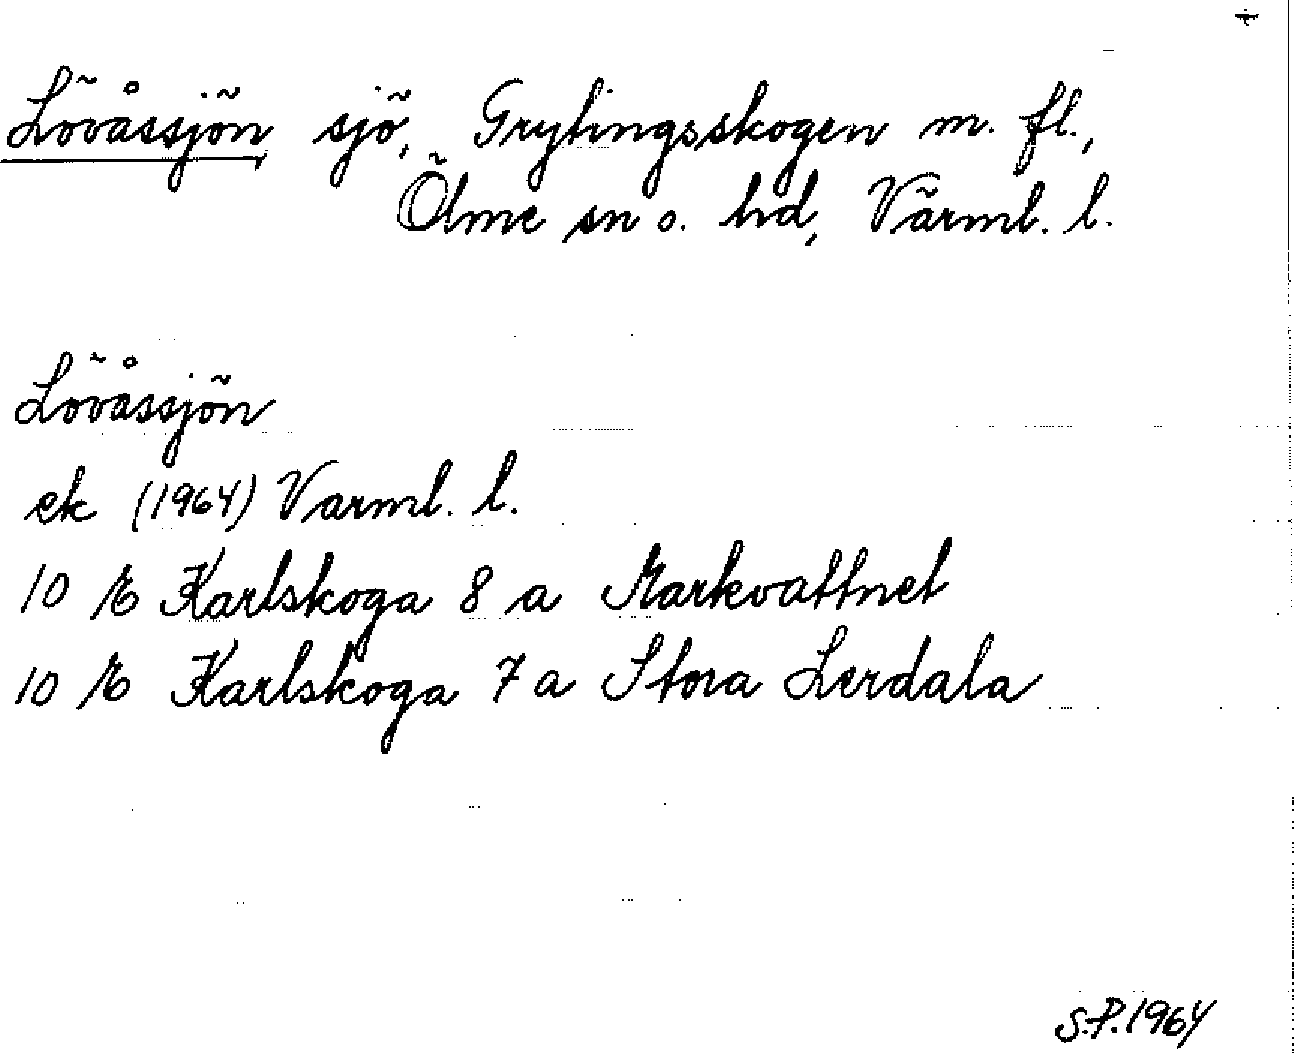 Lövåssjön sjö, Grytingsskogen m. fl.,
Ölme sn o. hd, Värml. l.
Lövåssjön
ek (1964) Varml. l.
10 E Karlskoga 8 a Markvattnet
10 E Karlskoga 7 a Stora Lerdala
S.P. 1964